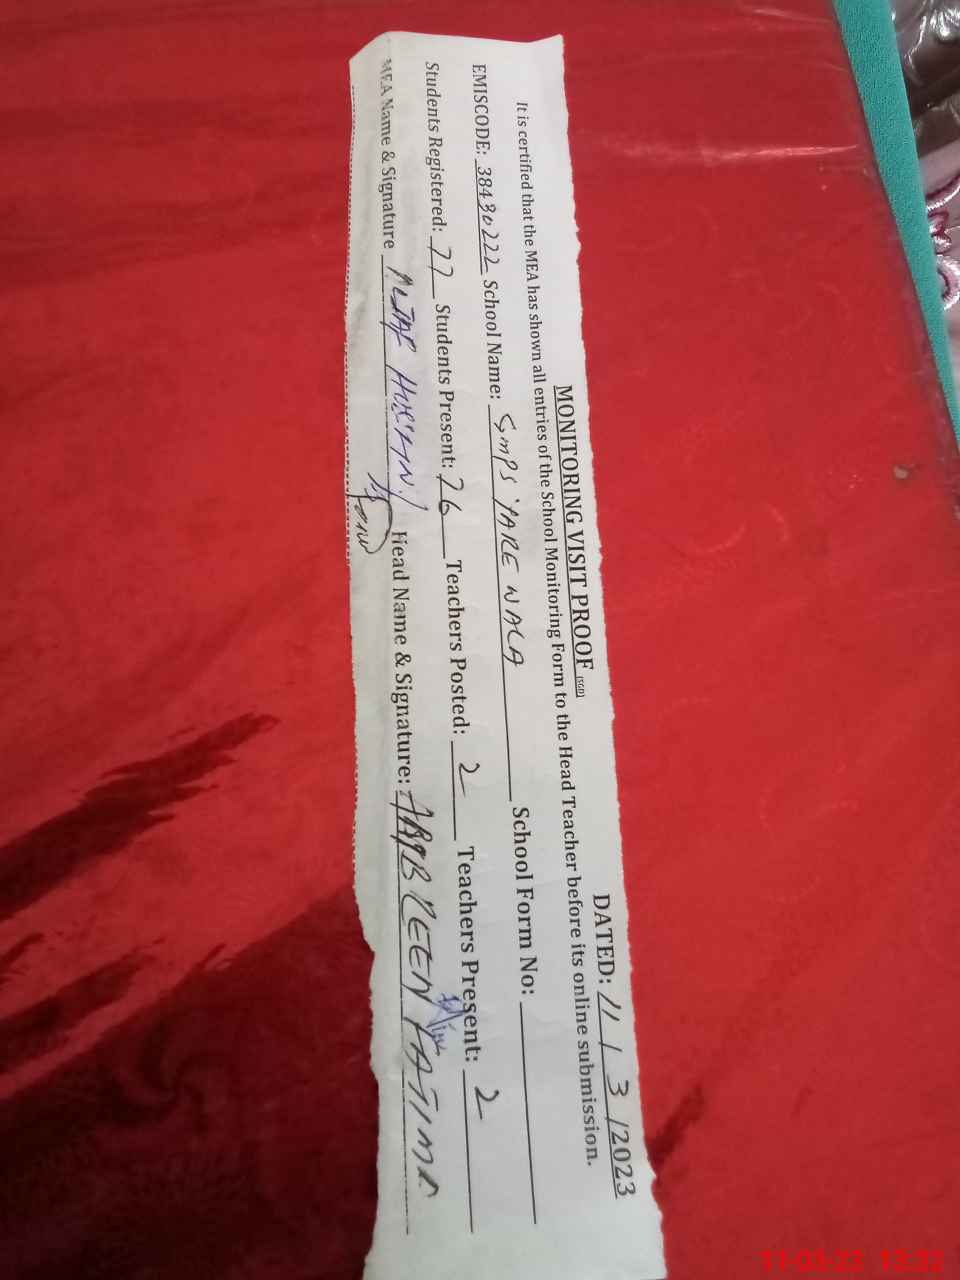 MONITORING VISIT PROOF (SGD) DATED: 11 / 3 /2023
It is certified that the MEA has shown all entries of the School Monitoring Form to the Head Teacher before its online submission.
EMISCODE: 38430222 School Name: GMPS YARE WALA School Form No:
Students Registered: 77 Students Present: 76 Teachers Posted: 2 Teachers Present: 2
MEA Name & Signature ALTAF HUSSAIN Head Name & Signature: FATIMA
11-03-23 13:32